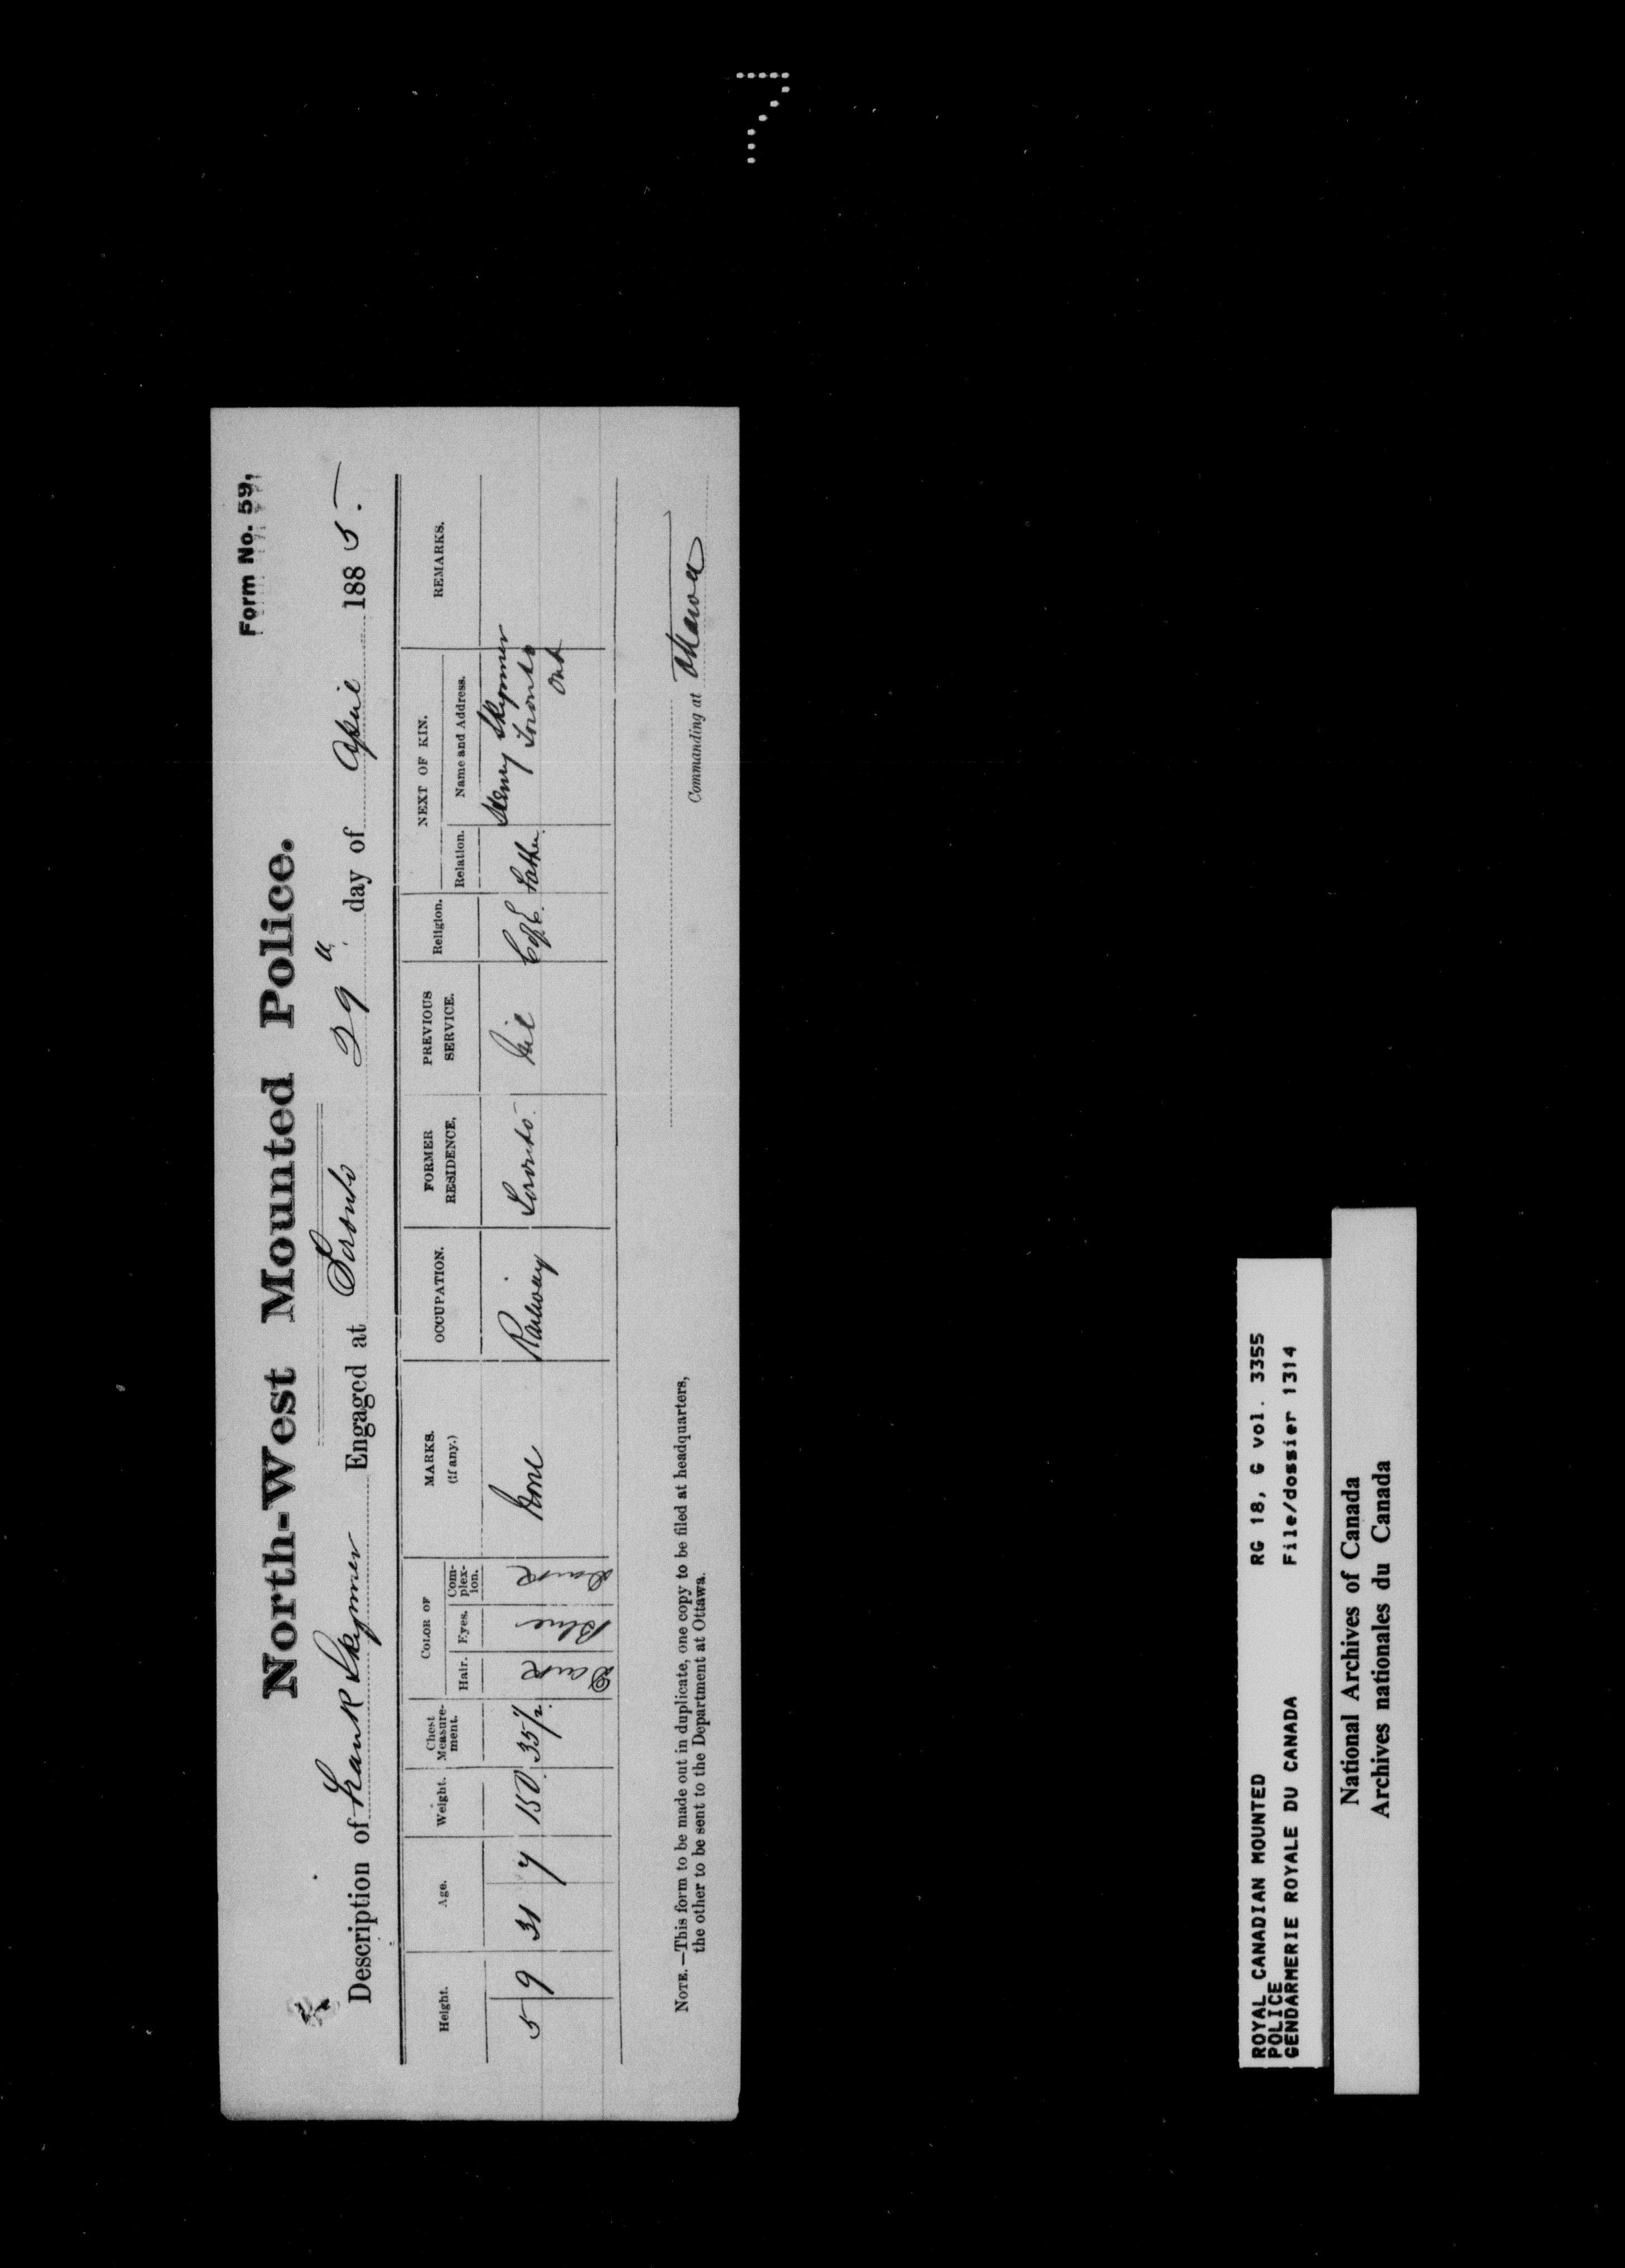 Form No. 59,
North-West Mounted Police.
Description of Frank Skynner Engaged at Toronto 29th day of April 1885.
Height. Age. Weight. Chest Measurement. COLOR OF Hair. Eyes. Complexion. MARKS. (If any.) OCCUPATION. FORMER RESIDENCE. PREVIOUS SERVICE. Religion. NEXT OF KIN. Relation. Name and Address. REMARKS.
5 9 31 7 150 35½" Dark Blue Dark None Railway Toronto Nil C of E. Father Henry Skynner
Toronto
Ont
Commanding at Ottawa
NOTE.—This form to be made out in duplicate, one copy to be filed at headquarters,
the other to be sent to the Department at Ottawa.
ROYAL CANADIAN MOUNTED RG 18, G vol. 3355
POLICE
GENDARMERIE ROYALE DU CANADA File/dossier 1314
National Archives of Canada
Archives nationales du Canada
7